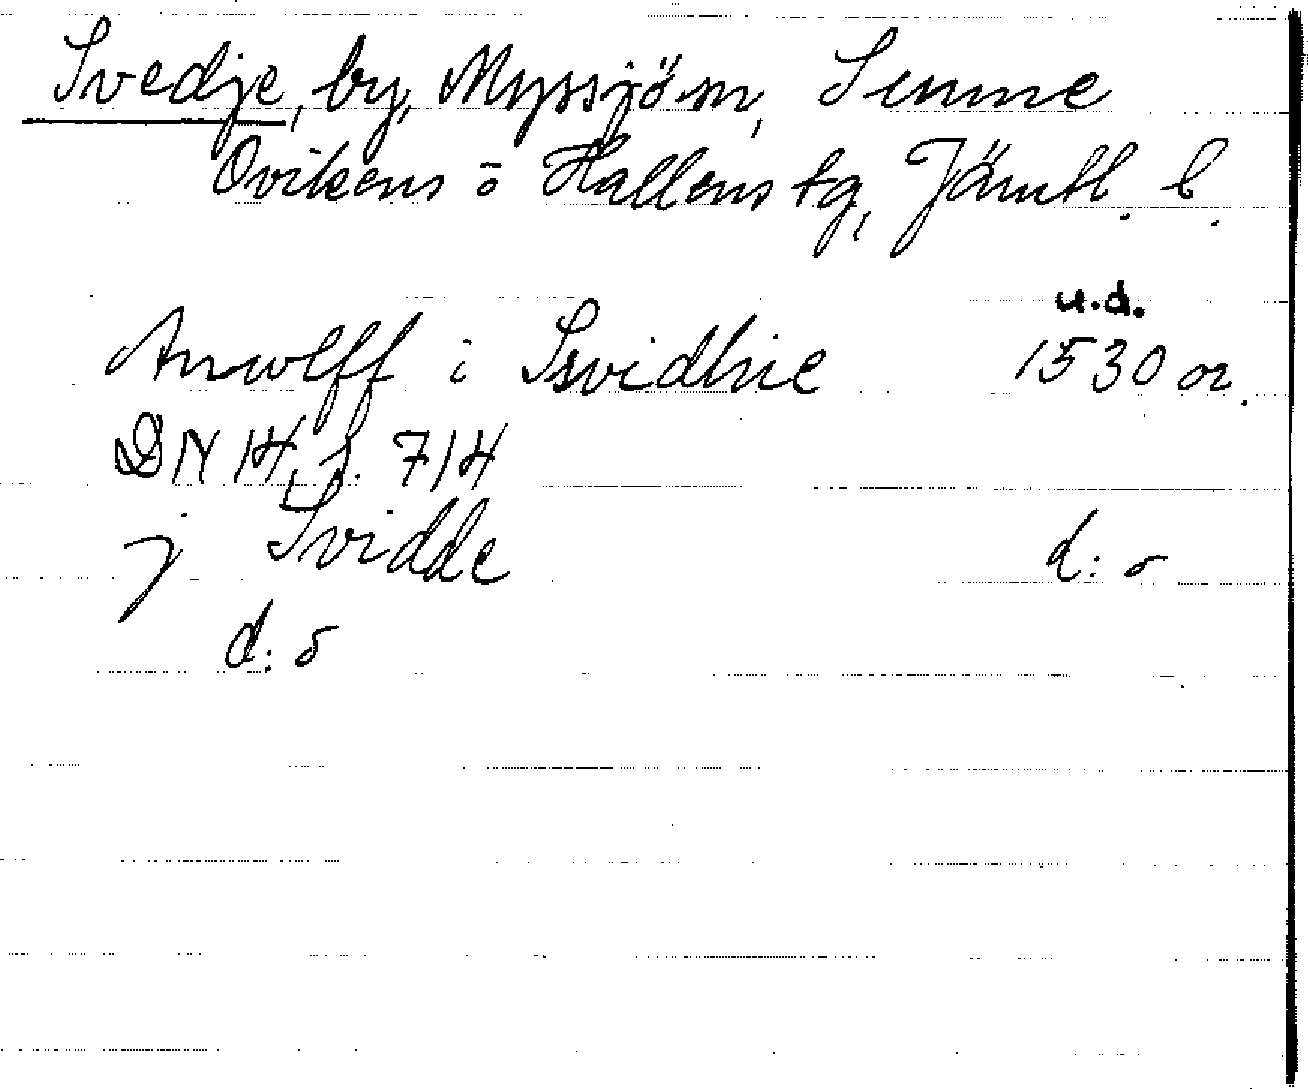 Svedje, by, Myssjö sn, Sunne
Ovikens o Hallens tg, Jämtl. l.
u.d.
Anwlff i Svidhie 1530 or.
DN 14, s. 714
j Svidde d:o
d:o